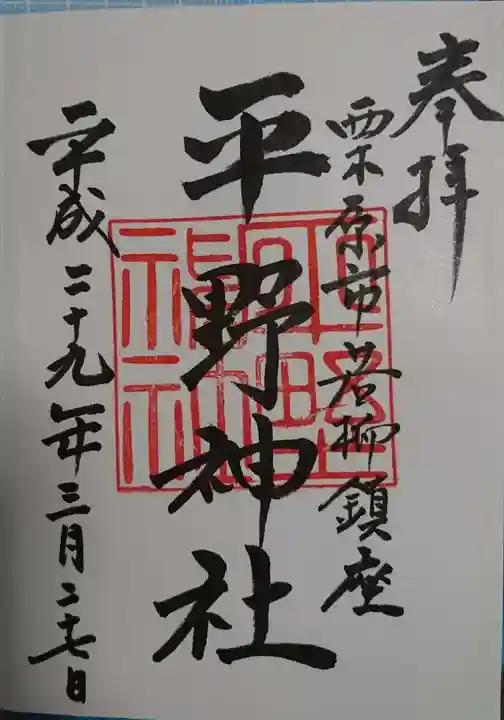 奉拝
栗原市若柳鎮座
平野神社
平成二十九年三月二十七日